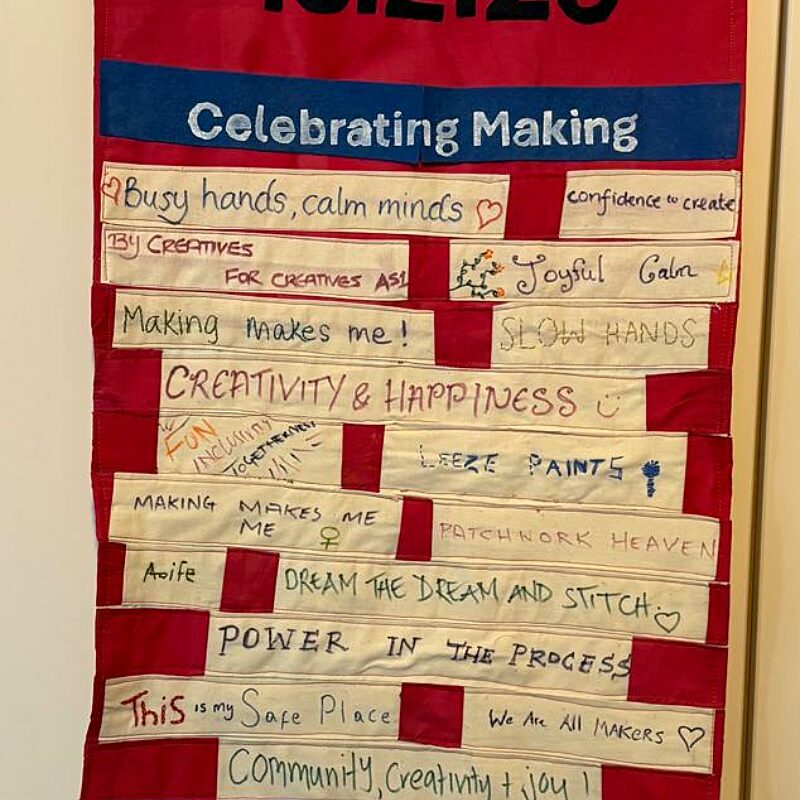 Celebrating Making
Busy hands, calm minds
confidence to create
BY CREATIVES
FOR CREATIVES AS1
Joyful Calm
Making makes me!
SLOW HANDS
CREATIVITY & HAPPINESS
FUN
INCLUSIVITY
TOGETHERNESS
LEEZE PAINTS
MAKING MAKES ME
ME
PATCHWORK HEAVEN
Aoife
DREAM THE DREAM AND STITCH
POWER IN THE PROCESS
THiS is my Safe Place
We Are All MAKERS
Community, Creativity + joy!